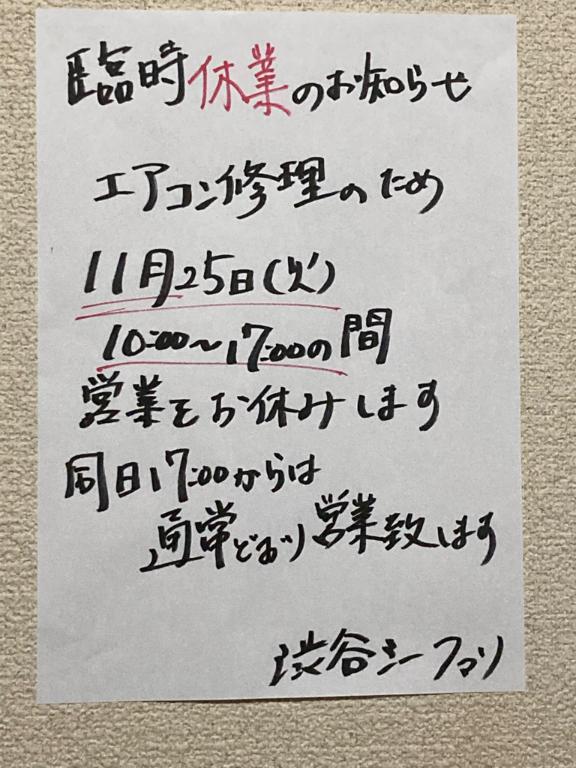 臨時休業のお知らせ
エアコン修理のため
11月25日(火)
10:00〜17:00の間
営業をお休みします
同日17:00からは
通常どおり営業致します
渋谷